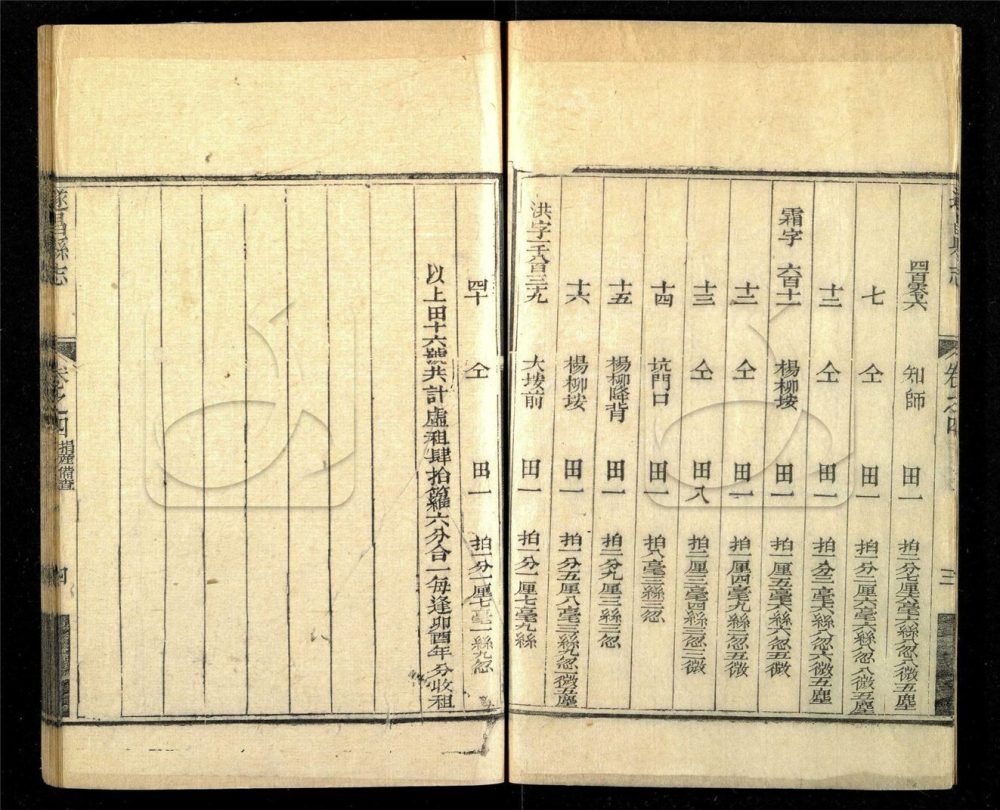 遂昌縣志 卷之四 三
四百零六 知師 田一 拍二分七厘六毫六絲八忽八微五塵
七 仝 田一 拍一分二厘六毫六絲八忽八微五塵
十二 仝 田一 拍一分三毫六絲八忽六微五塵
霜字 六百十一 楊柳垵 田一 拍一厘五毫六絲六忽五微
十二 仝 田一 拍一厘四毫九絲二忽五微
十三 仝 田八 拍二厘三毫四絲三忽三微
十四 坑門口 田一 拍八毫三絲三忽
十五 楊柳降背 田一 拍二分九厘三絲三忽
十六 楊柳垵 田一 拍一分五厘八毫三絲九忽一微五塵
洪字一千八百三十九 大垵前 田一 拍一分一厘七毫九絲
四十 仝 田一 拍一分一厘七毫一絲九忽
以上田十六號共計虛租肆拾籮六分合一每逢卯酉年分收租
遂昌縣志 卷之四 捐產備查 四